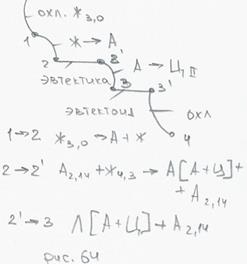 охл. Ж3,0
1
Ж → А
2
2'
А → ЦII
эвтектика
3
3'
эвтектоид
охл
4
1→2 Ж3,0 → А + Ж
2→2' А2,14 + Ж4,3 → А[А+Ц] +
+ А2,14
2'→3 Л[А+Ц] + А2,14
рис. 64